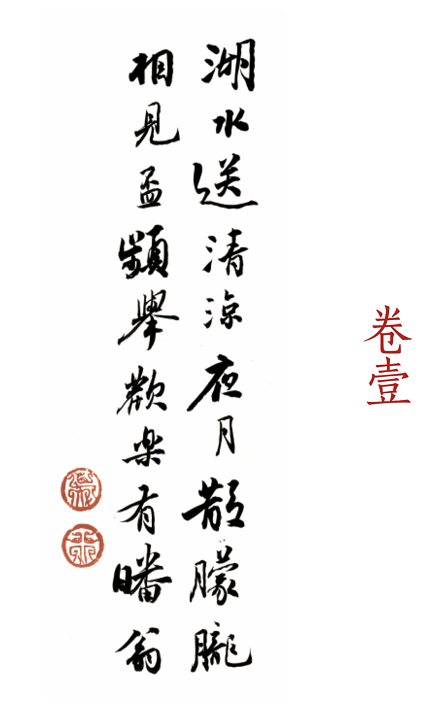 卷壹
湖水送清涼夜月散朦朧
相見盃頻舉歡楽有皤翁